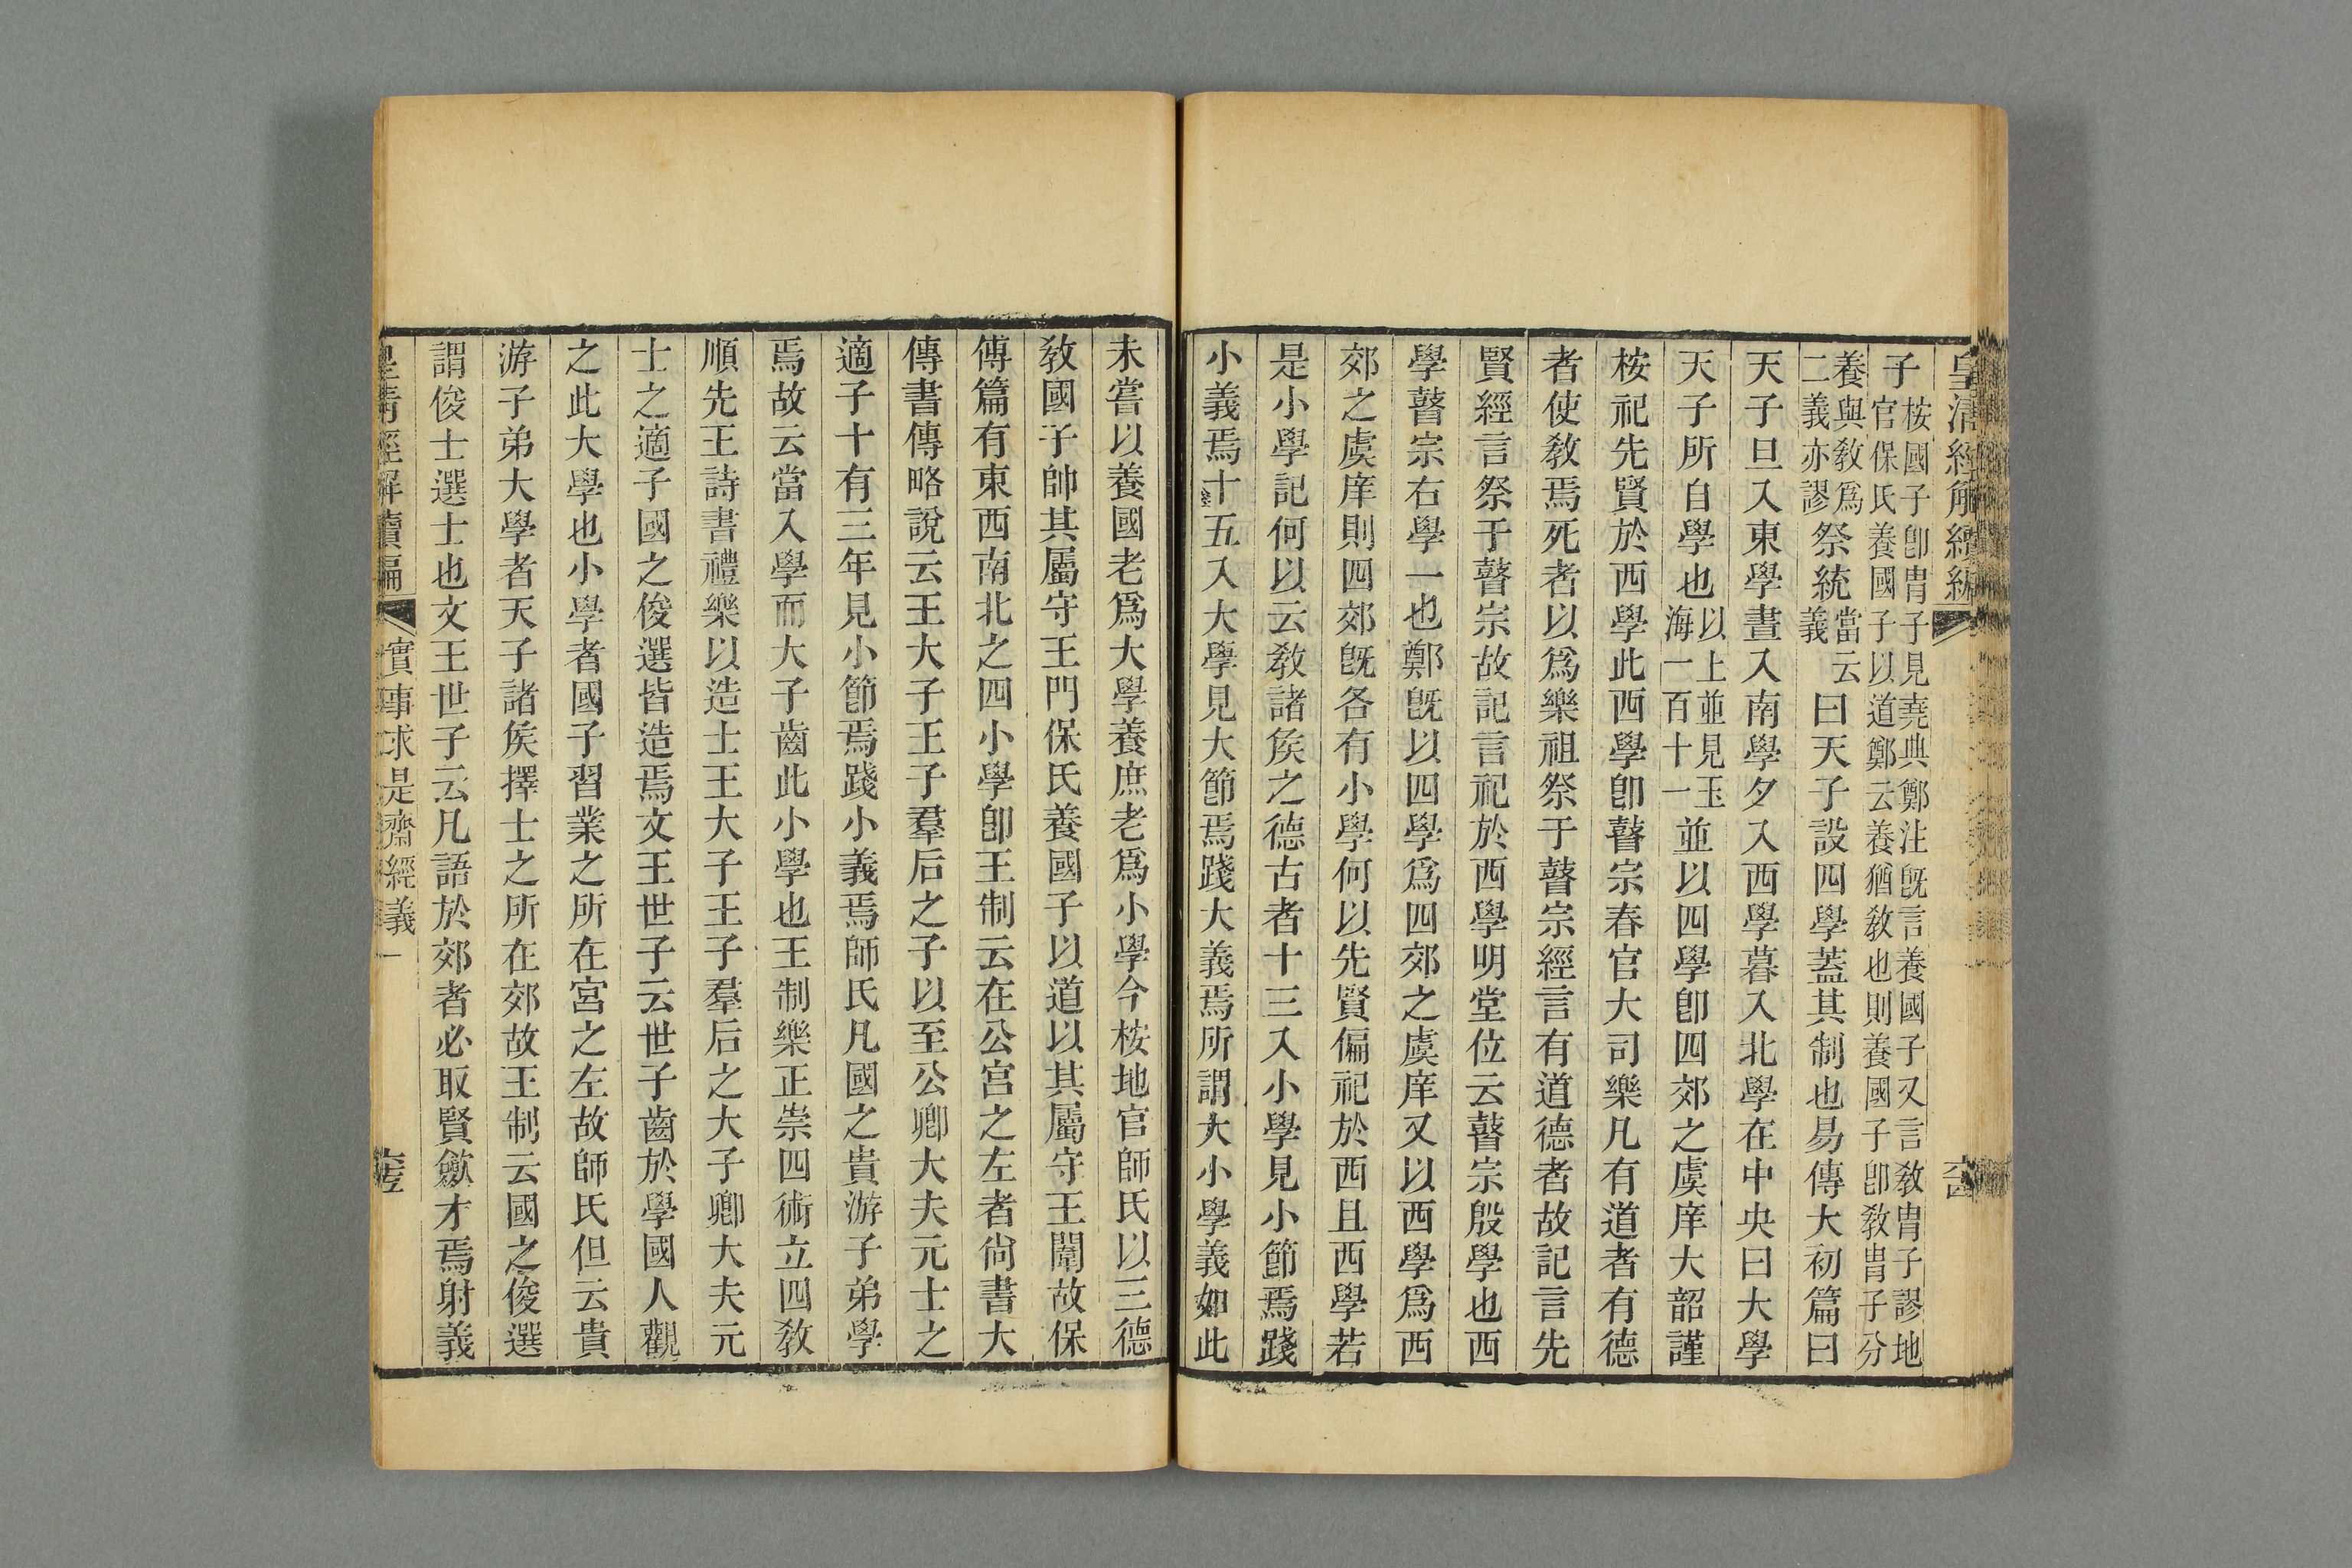 皇清經解續編
子桉國子卽冑子見堯典鄭注旣言養國子又言敎冑子謬地官保氏養國子以道鄭云養猶敎也則養國子卽敎冑子分
養與敎爲二義亦謬祭統當云義曰天子設四學蓋其制也易傳大初篇曰
天子旦入東學晝入南學夕入西學暮入北學在中央曰大學
天子所自學也以上並見玉海一百十一並以四學卽四郊之虞庠大韶謹
桉祀先賢於西學此西學卽瞽宗春官大司樂凡有道者有德
者使敎焉死者以爲樂祖祭于瞽宗經言有道德者故記言先
賢經言祭于瞽宗故記言祀於西學明堂位云瞽宗殷學也西
學瞽宗右學一也鄭旣以四學爲四郊之虞庠又以西學爲西
郊之虞庠則四郊旣各有小學何以先賢偏祀於西且西學若
是小學記何以云敎諸矦之德古者十三入小學見小節焉踐
小義焉十五入大學見大節焉踐大義焉所謂大小學義如此
未嘗以養國老爲大學養庶老爲小學今桉地官師氏以三德
敎國子帥其屬守王門保氏養國子以道以其屬守王闈故保
傅篇有東西南北之四小學卽王制云在公宮之左者尙書大
傳書傳略說云王大子王子羣后之子以至公卿大夫元士之
適子十有三年見小節焉踐小義焉師氏凡國之貴游子弟學
焉故云當入學而大子齒此小學也王制樂正崇四術立四敎
順先王詩書禮樂以造士王大子王子羣后之大子卿大夫元
士之適子國之俊選皆造焉文王世子云世子齒於學國人觀
之此大學也小學者國子習業之所在宮之左故師氏但云貴
游子弟大學者天子諸矦擇士之所在郊故王制云國之俊選
謂俊士選士也文王世子云凡語於郊者必取賢斂才焉射義
皇清經解續編
實事求是齋經義一